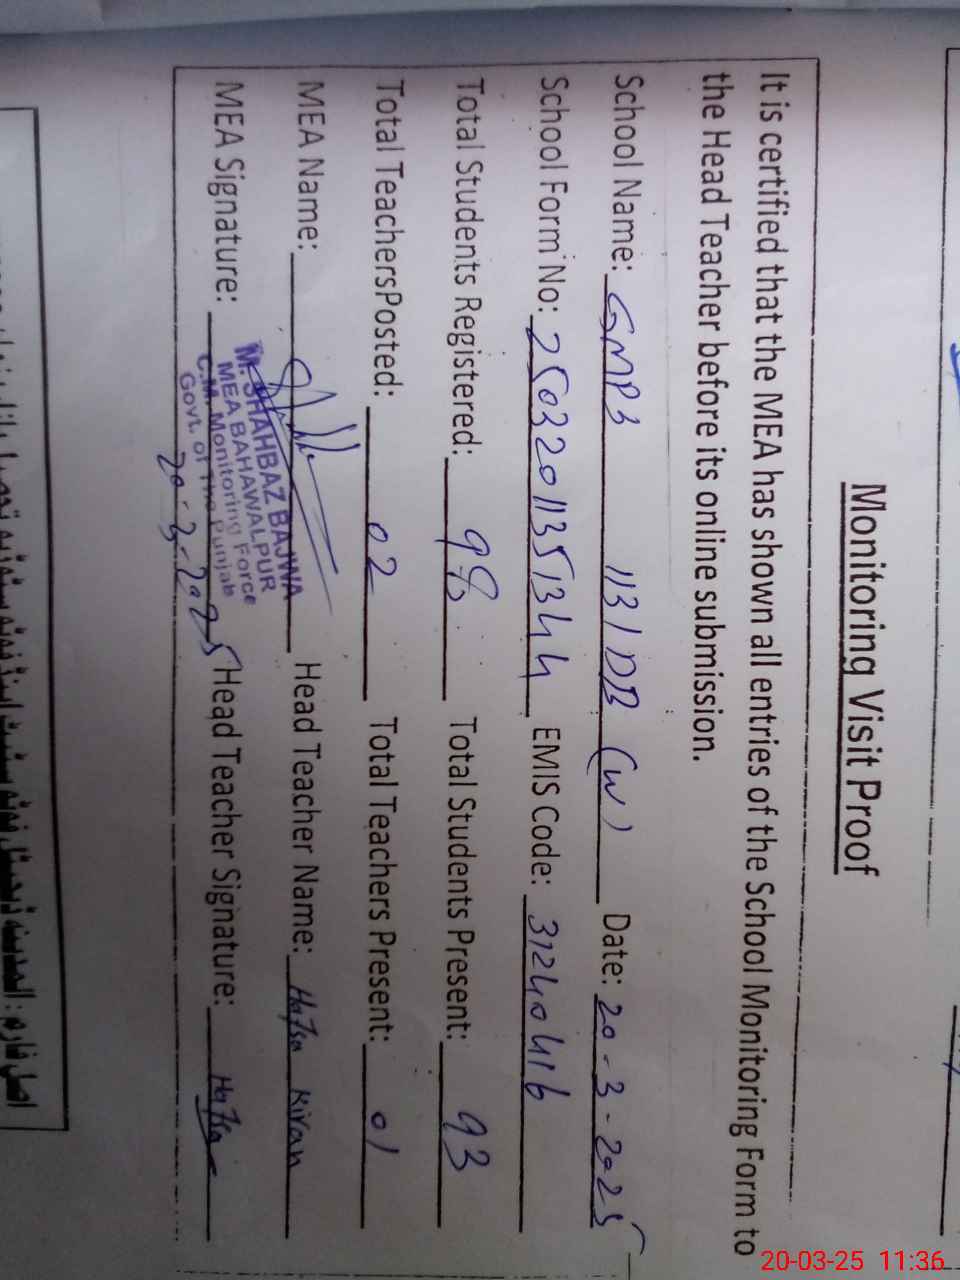 Monitoring Visit Proof
It is certified that the MEA has shown all entries of the School Monitoring Form to
the Head Teacher before its online submission.
School Name: GMPS 113/DB (W) Date: 20-3-2025
School Form No: 25032011351344 EMIS Code: 31240416
Total Students Registered: 98 Total Students Present: 93
Total TeachersPosted: 02 Total Teachers Present: 01
MEA Name: Head Teacher Name: Hafsa Kiran
MEA Signature: Head Teacher Signature: Hafsa
M. SHAHBAZ BAJWA
MEA BAHAWALPUR
C.M. Monitoring Force
Govt. of The Punjab
20-3-2025
20-03-25 11:36